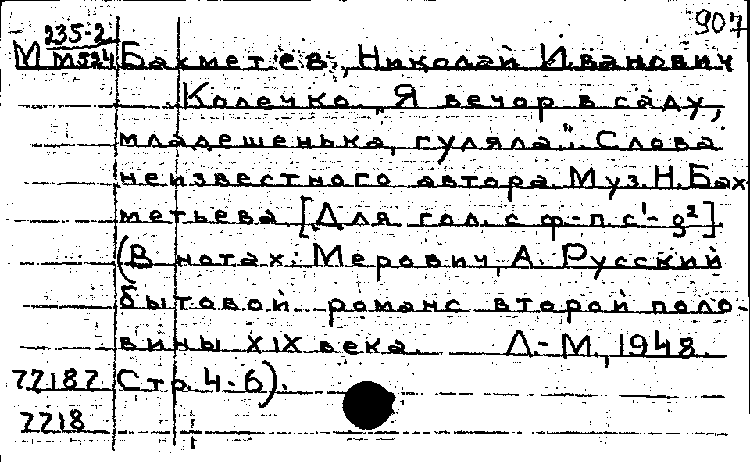 907
235-2
М М524 Бахметев, Николай Иванович
Колечко. „Я вечор в саду,
младешенька, гуляла". Слова
неизвестного автора. Муз. Н. Бах
метьева [Для гол. с ф-п. c¹- g²].
(В нотах: Мерович, А. Русский
бытовой романс второй поло-
вины XIX века. Л.-М., 1948.
77187 Стр. 4-6).
7718